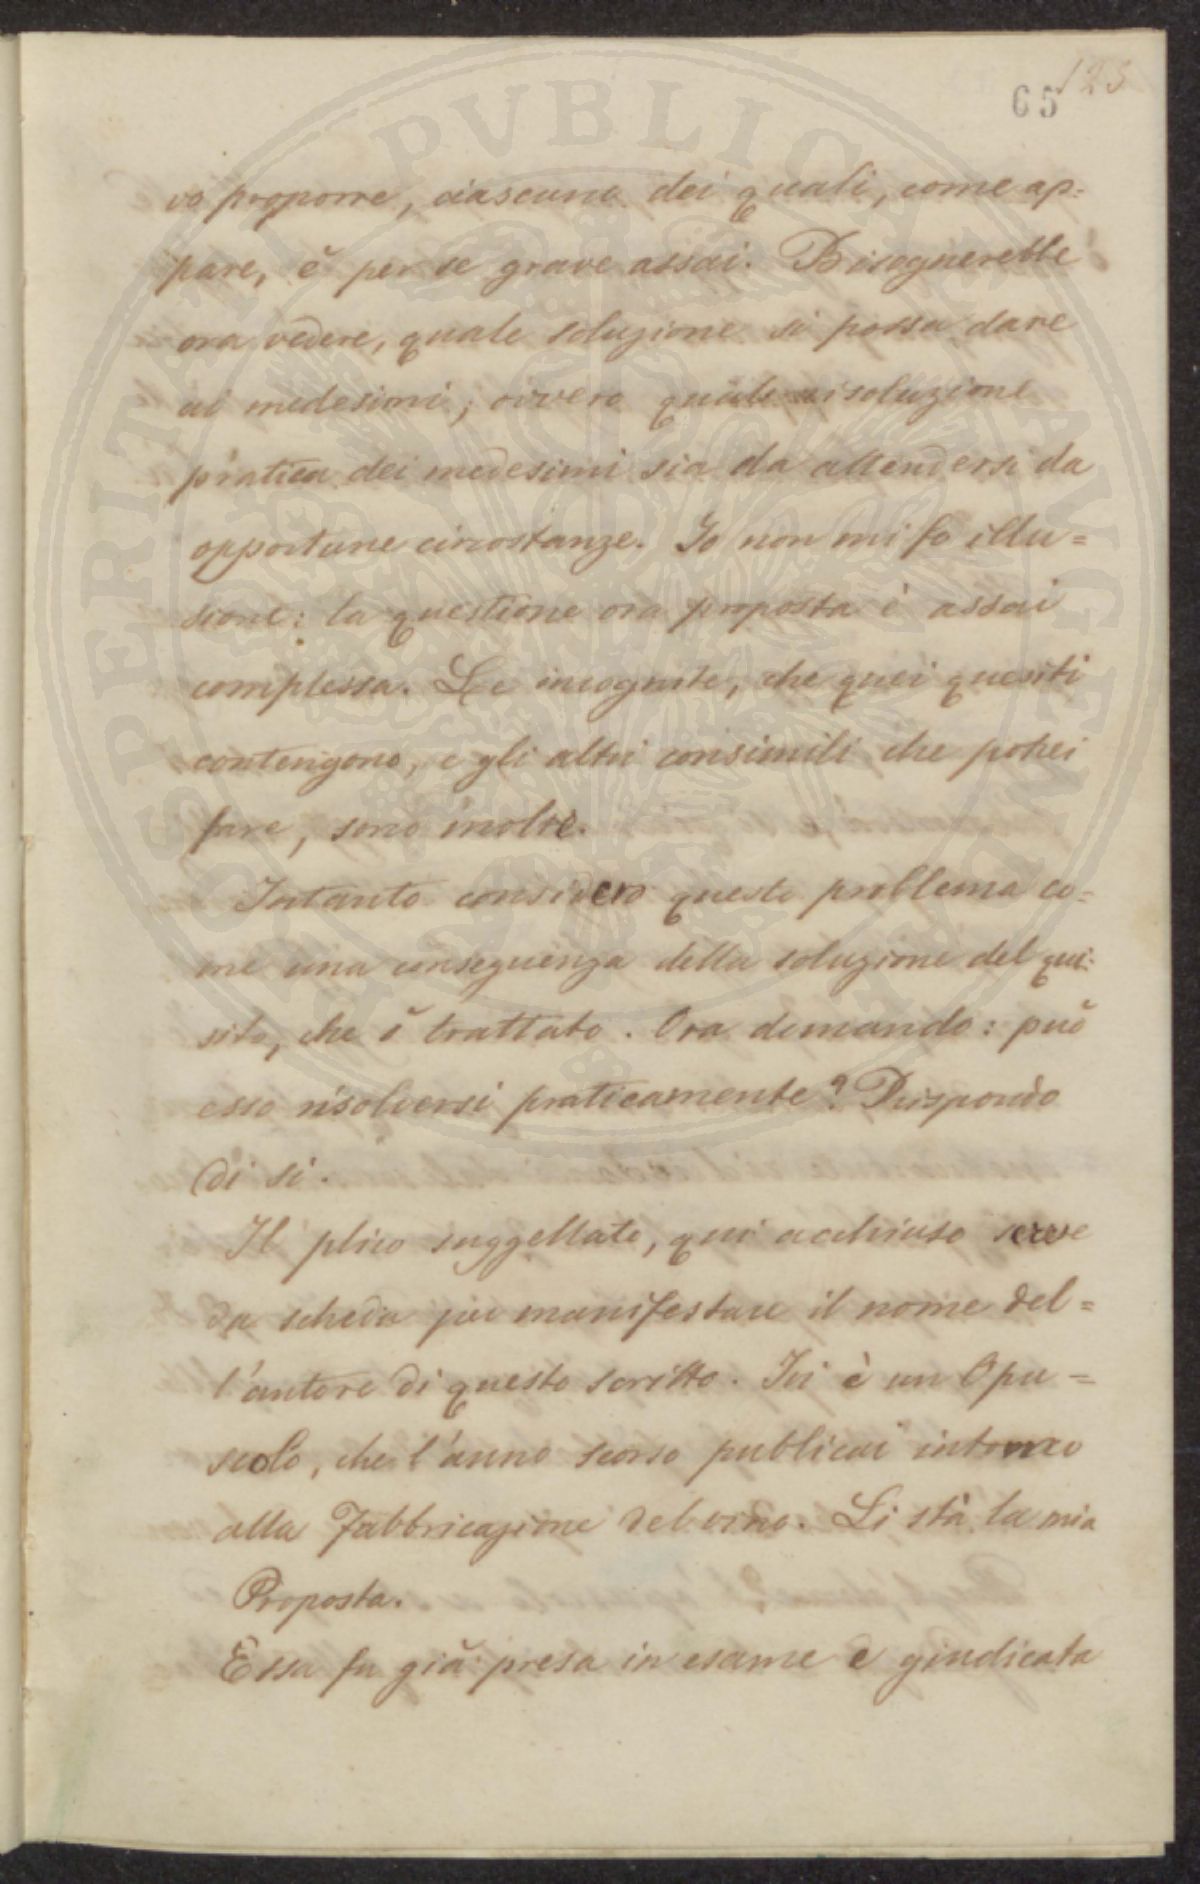 123
65
vo proporre, ciascuno dei quali, come ap=
pare, è per se grave assai. Bisognerebbe
ora vedere, quale soluzione si possa dare
ai medesimi; ovvero quale risoluzione
pratica dei medesimi sia da attendersi da
opportune circostanze. Io non mi fo illu=
sione: la questione ora proposta è assai
complessa. Le incognite, che quei quesiti
contengono, e gli altri consimili che potrei
fare, sono molte.
Intanto considero questo problema co=
me una conseguenza della soluzione del que=
sito, che è trattato. Ora domando: può
esso risolversi praticamente? Rispondo
di si.
Il plico suggellato, qui acchiuso serve
da scheda per manifestare il nome del=
l'autore di questo scritto. Ivi è un Opu=
scolo, che l'anno scorso publicai intorno
alla Fabbricazione del vino. Li stà la mia
Proposta.
Essa fu già presa in esame e giudicata
PROSPERITATI PVBLICAE AVGENDAE